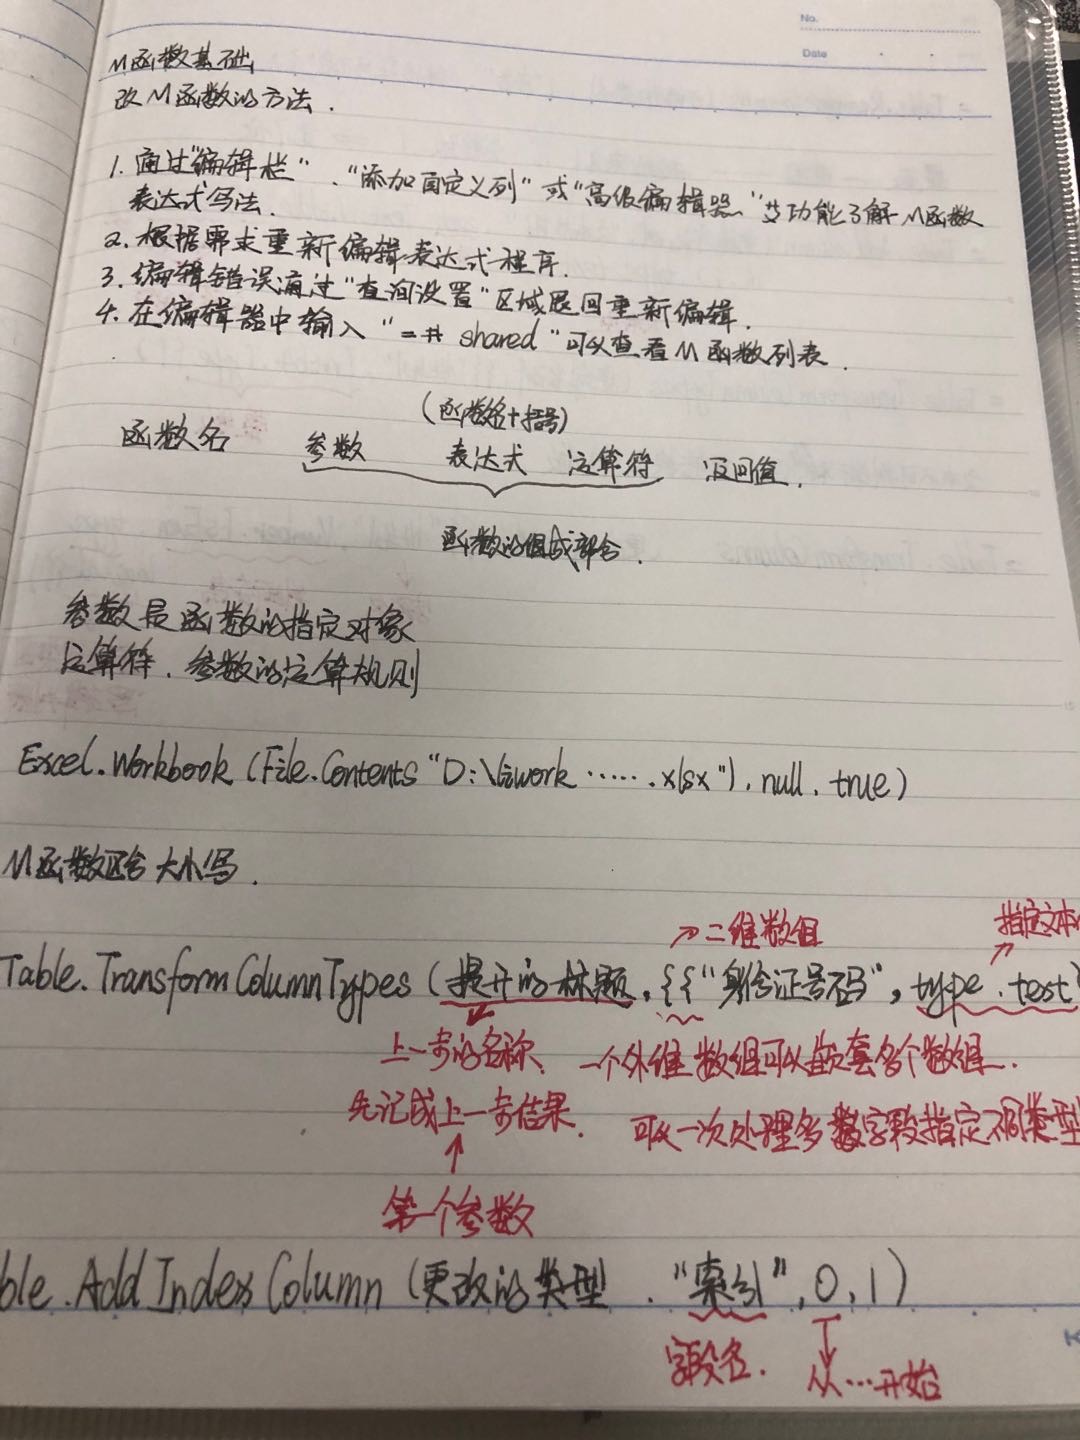 No.
Date
M函数基础
改M函数的方法.
1. 通过"编辑栏"、"添加自定义列"或"高级编辑器"等功能了解M函数
表达式写法.
2. 根据需求重新编辑表达式程序.
3. 编辑错误通过"查询设置"区域退回重新编辑.
4. 在编辑器中输入"=# shared"可以查看M函数列表.
(函数名+括号)
函数名 参数 表达式 运算符 返回值.
函数的组成部分.
参数是函数的指定对象
运算符.参数的运算规则
Excel.Workbook (File.Contents "D:\ work ...... .xlsx"), null, true)
M函数区分大小写.
二维数组 指定文本
Table.TransformColumnTypes (提升的标题, {{"身份证号码", type.text}
上一步的名称、 一个外维数组可以嵌套多个数组.
先记成上一步结果. 可以一次处理多数字段指定不同类型
第一个参数
ble.AddIndexColumn (更改的类型."索引",0,1)
字段名. 从…开始